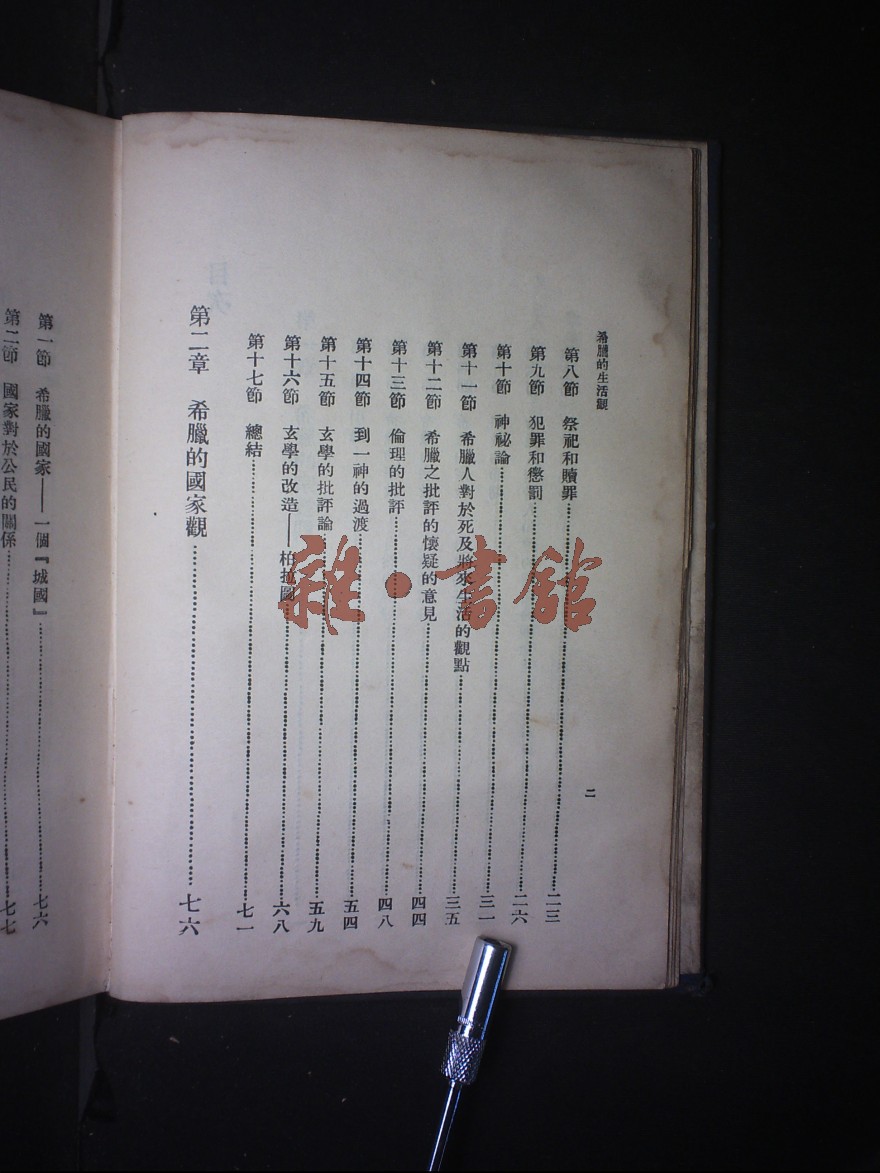 希臘的生活觀
二
第八節 祭祀和贖罪……二三
第九節 犯罪和懲罰……二六
第十節 神祕論……三一
第十一節 希臘人對於死及將來生活的觀點……三五
第十二節 希臘之批評的懷疑的意見……四四
第十三節 倫理的批評……四八
第十四節 到一神的過渡……五四
第十五節 玄學的批評論……五九
第十六節 玄學的改造——柏拉圖……六八
第十七節 總結……七一
第二章 希臘的國家觀……七六
第一節 希臘的國家——一個『城國』……七六
第二節 國家對於公民的關係……七七
雜·書館